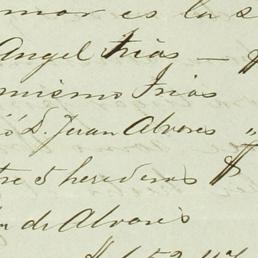 mor es la s
Angel Frias — $
mismo Frias
ó D. Juan Alvares "
tre 5 herederos $
de Alvares